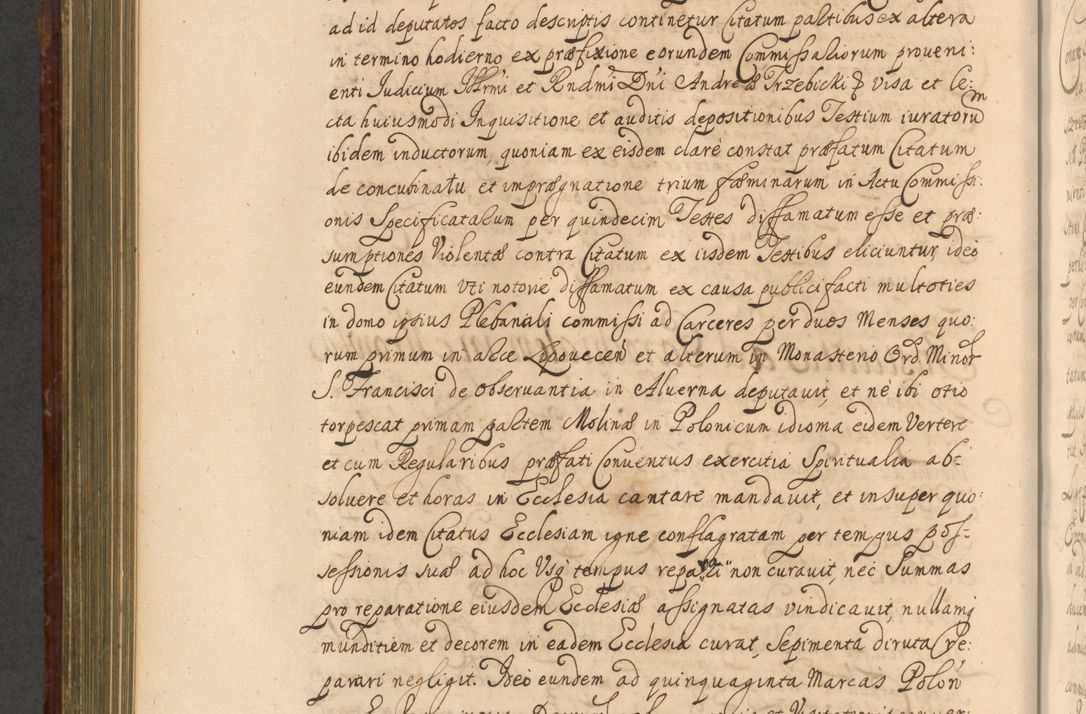 ad id deputatos facto descriptis continetur Citatum partibus ex altera
in termino hodierno ex præfixione eorundem Commissariorum proveni:
enti Judicium Illrmi et Rndmi Dni Andreæ Trzebicki visa et le:
cta huiusmodi Inquisitione et auditis depositionibus Testium iuratorum
ibidem inductorum, quoniam ex eisdem claré constat præfatum Citatum
de concubinatu et imprægnatione trium fæminarum in Actu Commissi:
onis Specificatarum per quindecim Testes diffamatum esse et præ:
sumptiones Violentæ contra Citatum ex iisdem Testibus eliciuntur, ideo
eundem Citatum uti notorie diffamatum ex causa publici facti multoties
in domo ipsius Plebanali commissi ad Carceres per duos Menses quo:
rum primum in arce Lipovecen et alterum in Monasterio Ord. Minor
S. Francisci de Observantia in Alverna deputavit, et né ibi otio
torpescat primam partem Molinæ in Polonicum idioma eidem Vertere
et cum Regularibus præfati Conventus exercitia Spiritualia ab:
solvere et horas in Ecclesia cantare mandavit, et insuper quo:
niam idem Citatus Ecclesiam igne conflagratam per tempus pos:
sessionis suæ ad hoc Usq tempus non curavit, nec Summas
pro reparatione eiusdem Ecclesiæ assignatas vindicavit, nullamq
munditiem et decorem in eadem Ecclesia curat, Sepimenta diruta re:
parari negligit. Ideo eundem ad quinquaginta Marcas Polon